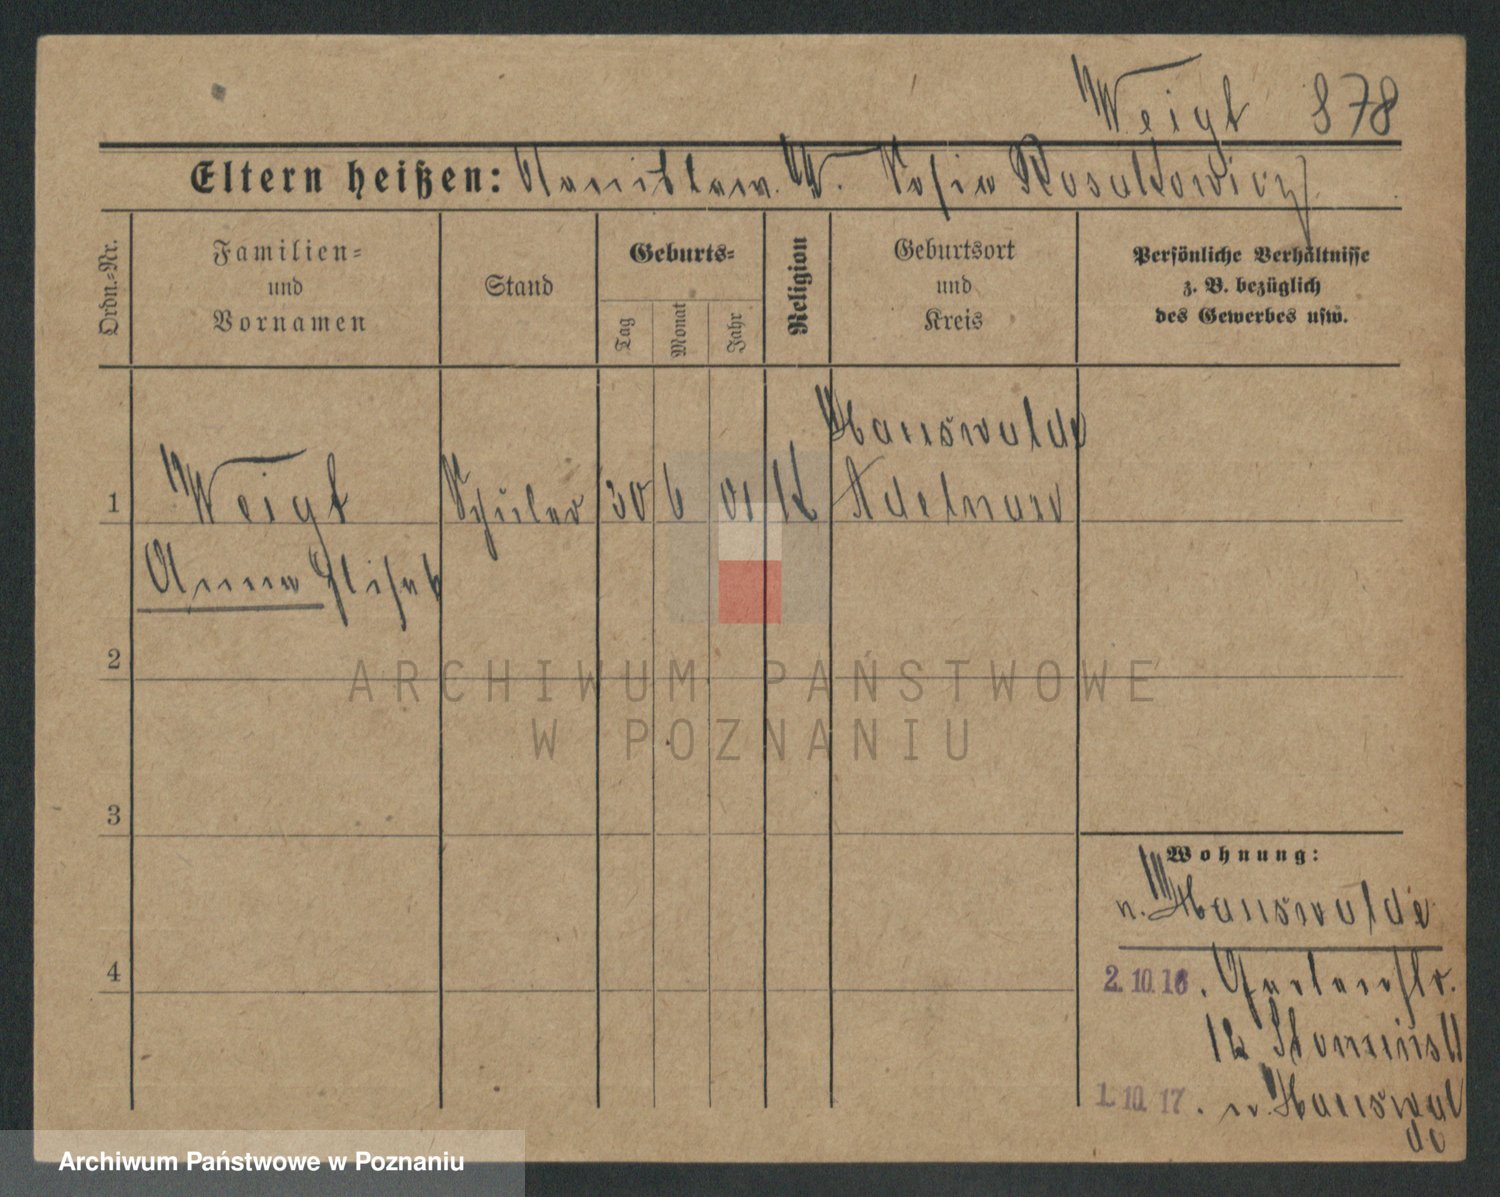 Weigt 878
Eltern heißen: Stanislaw. W. Sofia Rosalkowicz
Ordn.-Nr.
Familien-
und
Vornamen
Stand
Geburts-
Tag
Monat
Jahr
Religion
Geburtsort
und
Kreis
Persönliche Verhältnisse
z. B. bezüglich
des Gewerbes usw.
Hauswalde
1 Weigt Schüler 30 6 01 K Adelnau
Anna Elisab
2
ARCHIWUM PAŃSTWOWE
W POZNANIU
3
Wohnung:
n. Hauswalde
4
2. 10. 16. Gartenstr.
12
1. 10. 17. n. Hauswal
de
Archiwum Państwowe w Poznaniu